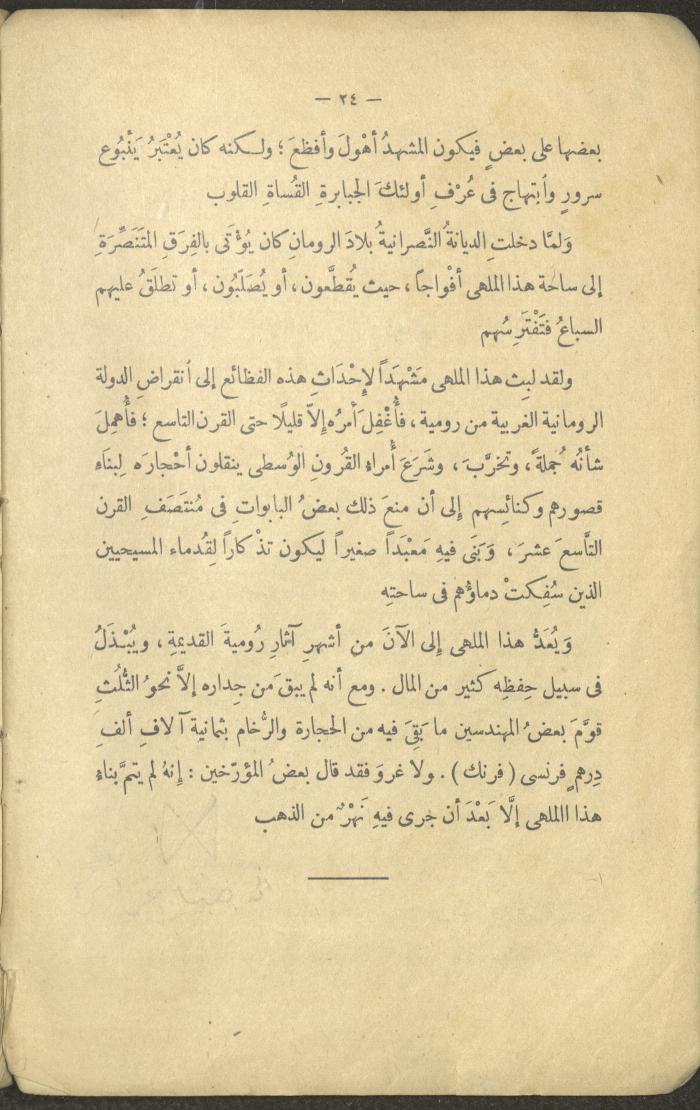 — ٢٤ —
بعضها على بعضٍ فيكون المشهدُ أهْولَ وأفظعَ ؛ ولكنه كان يُعْتَبَرُ يَنْبُوع
سرورٍ وٱبتهاج فى عُرْفِ أولئكَ الجبابرةِ القُساةِ القلوب
وَلمَّا دخلتِ الديانةُ النَّصرانيةُ بلادَ الرومانِ كان يُؤْتَى بالفِرَقِ المتَنَصِّرَةِ
إلى ساحة هذا الملهى أفْواجًا ، حيث يُقطَّعون ، أو يُصَلَّبُون ، أو تطلَقُ عليهم
السباعُ فتَفْتَرِسُهم
ولقد لبِث هذا الملهى مَشْهَدًا لإِحْدَاثِ هذه الفظائع إلى ٱنقراضِ الدولة
الرومانية الغربية من رومية ، فأُغْفِلَ أمرُه إلاّ قليلًا حتى القرن التاسع ؛ فأُهمِلَ
شأنُه جُملةً ، وتخرَّبَ ، وشَرَعَ أُمراءُ القُرونِ الوُسطى ينقلون أحْجارَه لِبناءِ
قصورهم وكنائِسهم إلى أن منعَ ذلك بعضُ البابواتِ فى مُنتَصَفِ القرن
التَّاسعَ عشرَ ، وَبَنَى فيهِ مَعْبَدًا صغيراً ليكون تذْكاراً لِقُدماء المسيحيين
الذين سُفِكتْ دماؤهم فى ساحتِهِ
وَيُعَدُّ هذا الملهى إلى الآنَ من أشهرِ آثارِ رُوميةَ القديمةِ ، ويُبْذَلُ
فى سبيل حِفظِهِ كثير من المال . ومع أنه لم يبقَ من جِداره إلاَّ نحوُ الثُّلُثِ
قوَّمَ بعضُ المهندسين ما بَقِىَ فيه من الحجارة والرُّخام بثمانية آلافِ ألفِ
دِرهمٍ فرنسى ( فرنك ) . ولا غروَ فقد قال بعضُ المؤرّخين : إنه لم يتمَّ بناءُ
هذا االملهى إلَّا بَعْدَ أن جرى فيهِ نَهْرٌ من الذهب